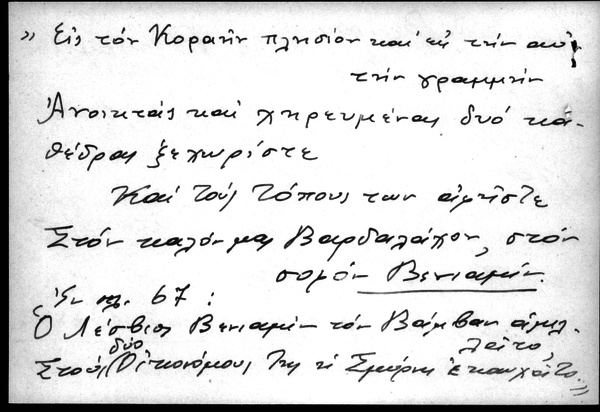 » Εἰς τόν Κοραῆν πλησίον καί εἰς τήν αὐ-
τήν γραμμήν
Ἀνοικτάς καί χηρευμένας δυό κα-
θέδρας ξεχωρίστε
Καί τούς τόπους των ἀφῆστε
Στόν καλόν μας Βαρδαλάχον, στόν
σοφόν Βενιαμίν.
Ἐν σελ. 67 :
Ὁ Λέσβιος Βενιαμίν τόν Βάμβαν ἀμιλ-
λᾶτο,
Στούς δύο Οἰκονόμους της ἡ Σμύρνη ἐκαυχᾶτο. »